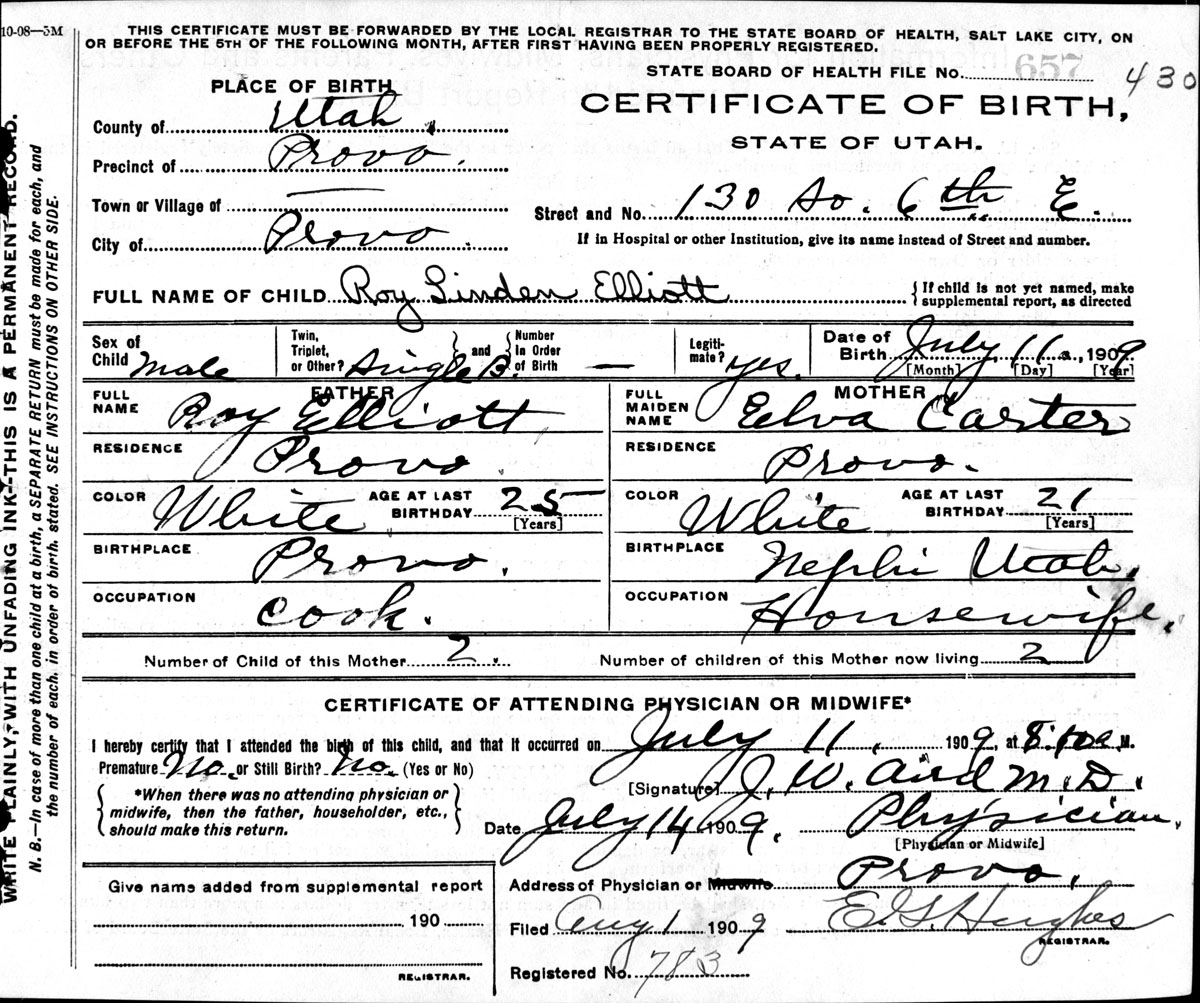 10-08—5M
THIS CERTIFICATE MUST BE FORWARDED BY THE LOCAL REGISTRAR TO THE STATE BOARD OF HEALTH, SALT LAKE CITY, ON
OR BEFORE THE 5TH OF THE FOLLOWING MONTH, AFTER FIRST HAVING BEEN PROPERLY REGISTERED.
STATE BOARD OF HEALTH FILE No. 657 430
PLACE OF BIRTH
CERTIFICATE OF BIRTH,
STATE OF UTAH.
County of Utah.
Precinct of Provo.
Town or Village of —
City of Provo.
Street and No. 130 So. 6th E.
If in Hospital or other Institution, give its name instead of Street and number.
FULL NAME OF CHILD Roy Linden Elliott { If child is not yet named, make
supplemental report, as directed
Sex of
Child Male
Twin,
Triplet,
or Other? Single B. } and { Number
in Order
of Birth —
Legiti-
mate? yes.
Date of
Birth July 11, 1909
[Month] [Day] [Year]
FATHER
FULL
NAME Roy Elliott
RESIDENCE Provo.
COLOR White AGE AT LAST
BIRTHDAY 25
[Years]
BIRTHPLACE Provo.
OCCUPATION Cook.
MOTHER
FULL
MAIDEN
NAME Elva Carter
RESIDENCE Provo.
COLOR White AGE AT LAST
BIRTHDAY 21
[Years]
BIRTHPLACE Nephi Utah.
OCCUPATION Housewife.
Number of Child of this Mother 2. Number of children of this Mother now living 2
CERTIFICATE OF ATTENDING PHYSICIAN OR MIDWIFE*
I hereby certify that I attended the birth of this child, and that it occurred on July 11, 1909, at M.
Premature No. or Still Birth? No. (Yes or No)
[Signature] J. W. Aird M.D.
{ *When there was no attending physician or
midwife, then the father, householder, etc.,
should make this return. }
Date July 14 1909. Physician.
[Physician or Midwife]
Address of Physician or Midwife Provo.
Filed Aug 1 1909 E. G. Hughes
REGISTRAR.
Registered No. 783
Give name added from supplemental report
190
REGISTRAR.
WRITE PLAINLY, WITH UNFADING INK--THIS IS A PERMANENT RECORD.
N. B.—In case of more than one child at a birth, a SEPARATE RETURN must be made for each, and
the number of each, in order of birth, stated. SEE INSTRUCTIONS ON OTHER SIDE.